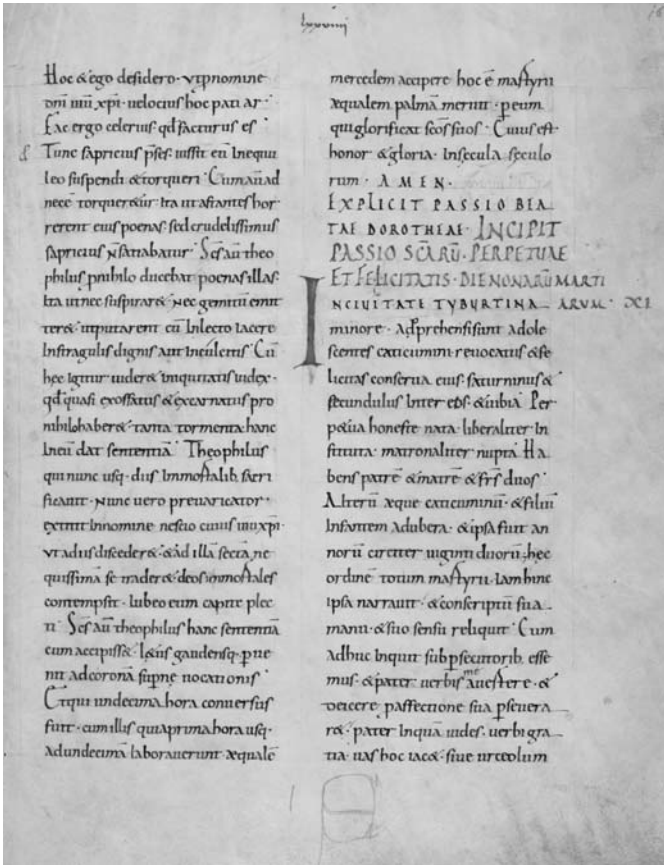 lxxviiij
Hoc & ego desidero · ut pnomine
dnī mei xpi · uelocius hoc patiar ·
Fac ergo celerius · qđ facturus es ·
& Tunc sapricius pses · iussit eū inequu
leo suspendi & torqueri · Cum aū ad
necē torquer&ur · Ita ut astantes hor
rerent eius poenas · sed crudelissimus
sapricius ñ satiabatur · Scs aū theo
philus pnihilo ducebat poenas illas ·
Ita ut nec suspirar& · nec gemitū emit
ter& · ut putarent cū inlecto iacere
Instragulis dignis aut inculcitis · Cū
hec igitur uider& iniquitatis iudex ·
qđ quasi exossatus & excarnatus pro
nihilo haber& · tanta tormenta · hanc
Ineū dat sententiā · Theophilus
qui nunc usq · diis immortalib sacri
ficauit · Nunc uero preuaricator ·
extitit innomine nescio cuius ihū xpi ·
ut a diis disceder& · & ad illā sectā ne
quissimā se trader& · & deos immortales
contempsit · Iubeo eum capite plec
ti · Scs aū theophilus hanc sententiā
cum accepiss& · Laetus gaudensq · pue
nit ad coronā supne uocationis ·
Et qui undecima hora conuersus
fuit · cum illis qui a prima hora usq ·
ad undecimā laborauerunt · aequalē
mercedem accipere hoc ē martyrii
aequalem palmā meruit · p eum
qui glorificat scos suos · Cuius est
honor & gloria · In secula seculo
rum · AMEN ·
EXPLICIT PASSIO BEA
TAE DOROTHEAE · INCIPIT
PASSIO SCARŪ · PERPETUAE
ET FELICITATIS · DIE NONARŪ MARTI
INCIUITATE TYBURTINA ARUM ·
minore · Adprehensi sunt adole
scentes caticumini · reuocatus & fe
licitas conserua eius · saturninus &
secundulus · Inter eos · & uibia Per
petua honeste nata · liberaliter in
stituta · matronaliter nupta · Ha
bens patrē & matrē & frs duos ·
Alterū aeque caticuminū · & filiū
Infantem ad ubera · & ipsa fuit an
norū circiter uiginti duorū · hec
ordinē totum martyrii · Iam hinc
Ipsa narrauit · & conscriptū sua
manu · & suo sensu reliquit · Cum
adhuc inquit sub psecutorib esse
mus · & pater uerbis me auertere · &
deicere p affectione sua pseuera
r& · pater Inquā uides · uerbi gra
tia · uas hoc iacens · siue urceolum